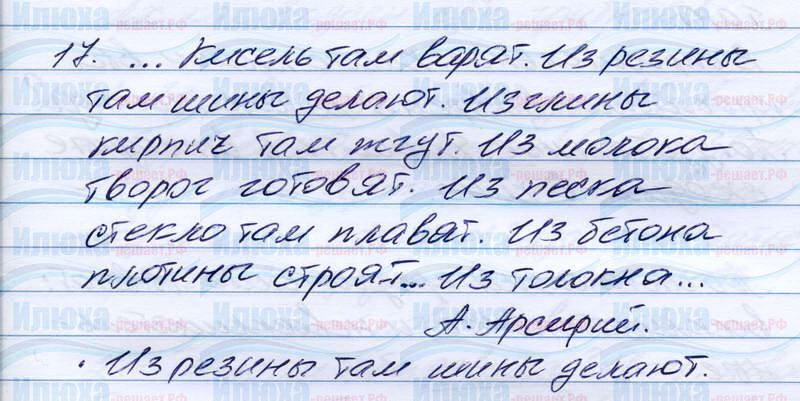 17. ... Кисель там варят. Из резины
там шины делают. Из глины
кирпич там жгут. Из молока
творог готовят. Из песка
стекло там плавят. Из бетона
плотины строят... Из толокна...
А. Арсирий.
• Из резины там шины делают.